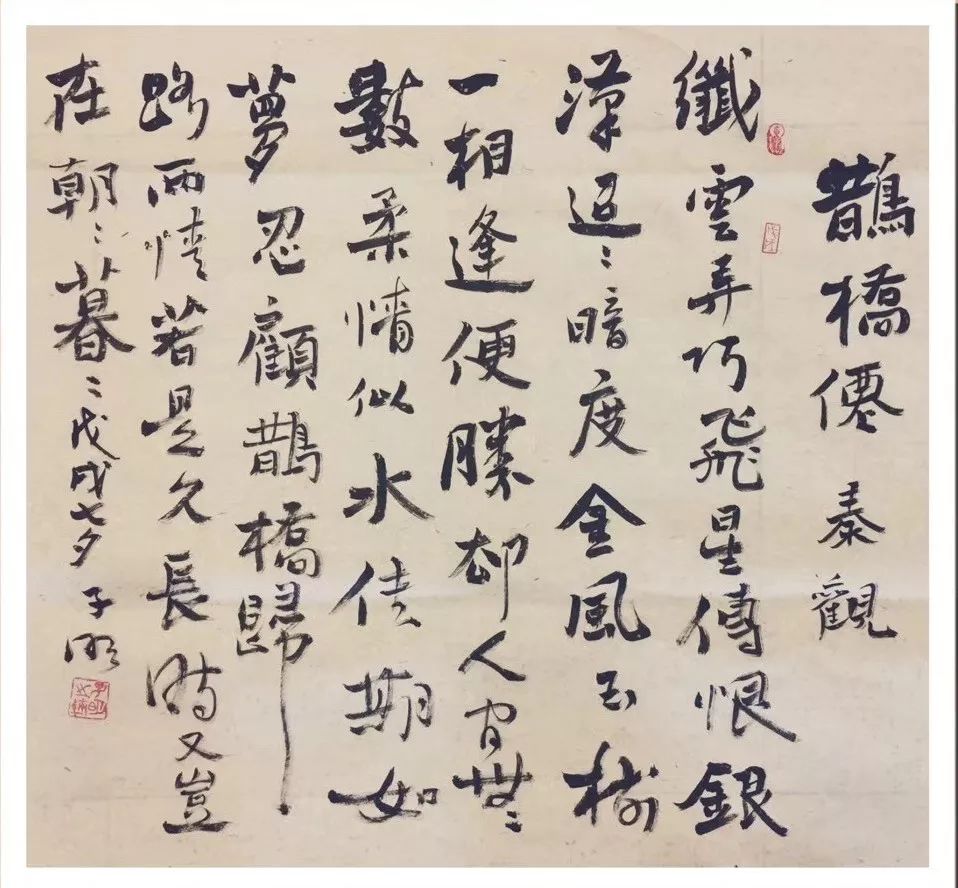 鵲橋僊 秦觀
纖雲弄巧飛星傳恨銀
漢迢〻暗度金風玉
一相逢便勝却人间無〻
數柔情似水佳期如
夢忍顧鵲橋歸
路兩情若是久長時又豈
在朝〻暮〻戊戌七夕 子明